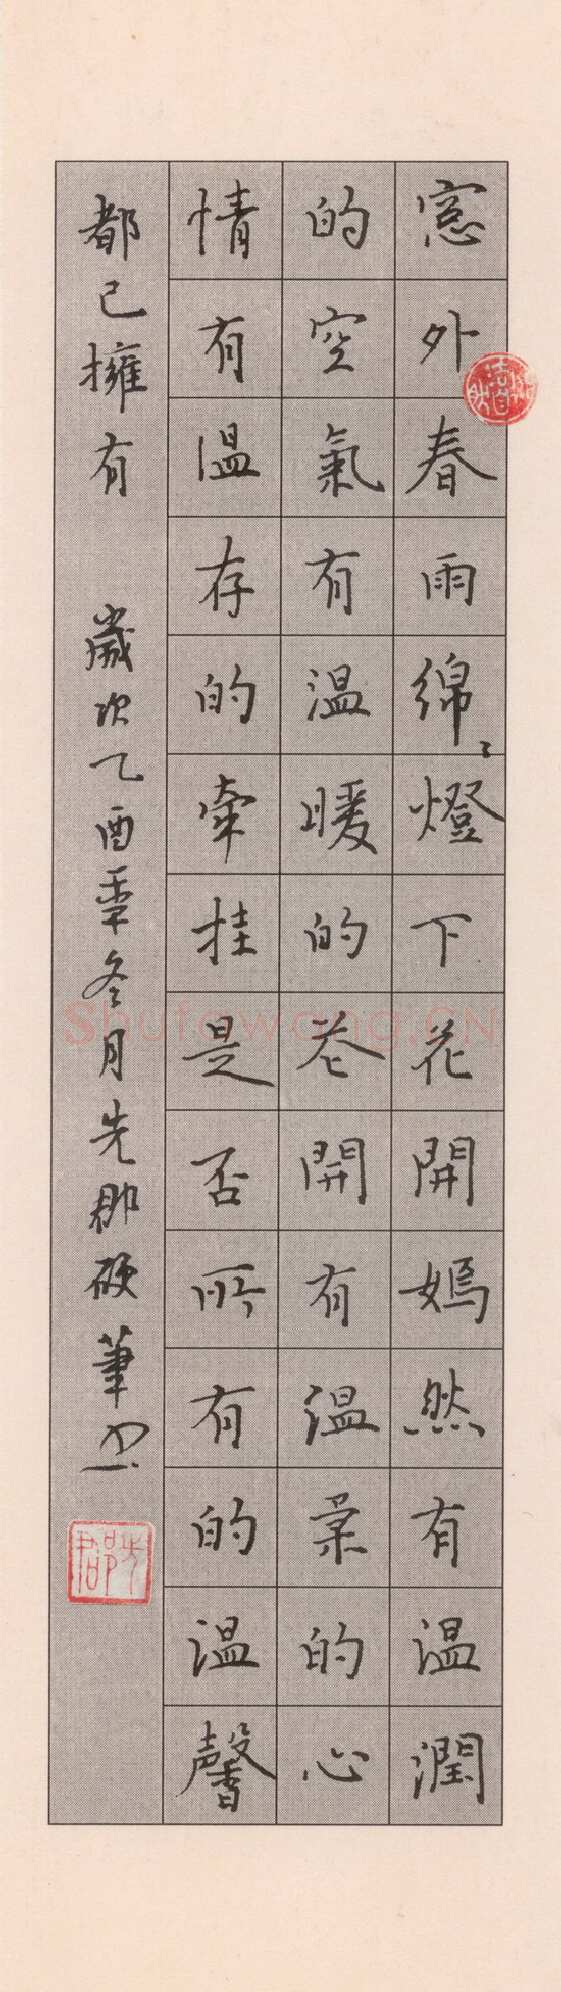 窓外春雨綿〻燈下花開嫣然有温潤
的空氣有温暖的花開有温柔的心
情有温存的牽挂是否所有的温馨
都已擁有 歲次乙酉年冬月先郡硬筆书
Shufawang.CN